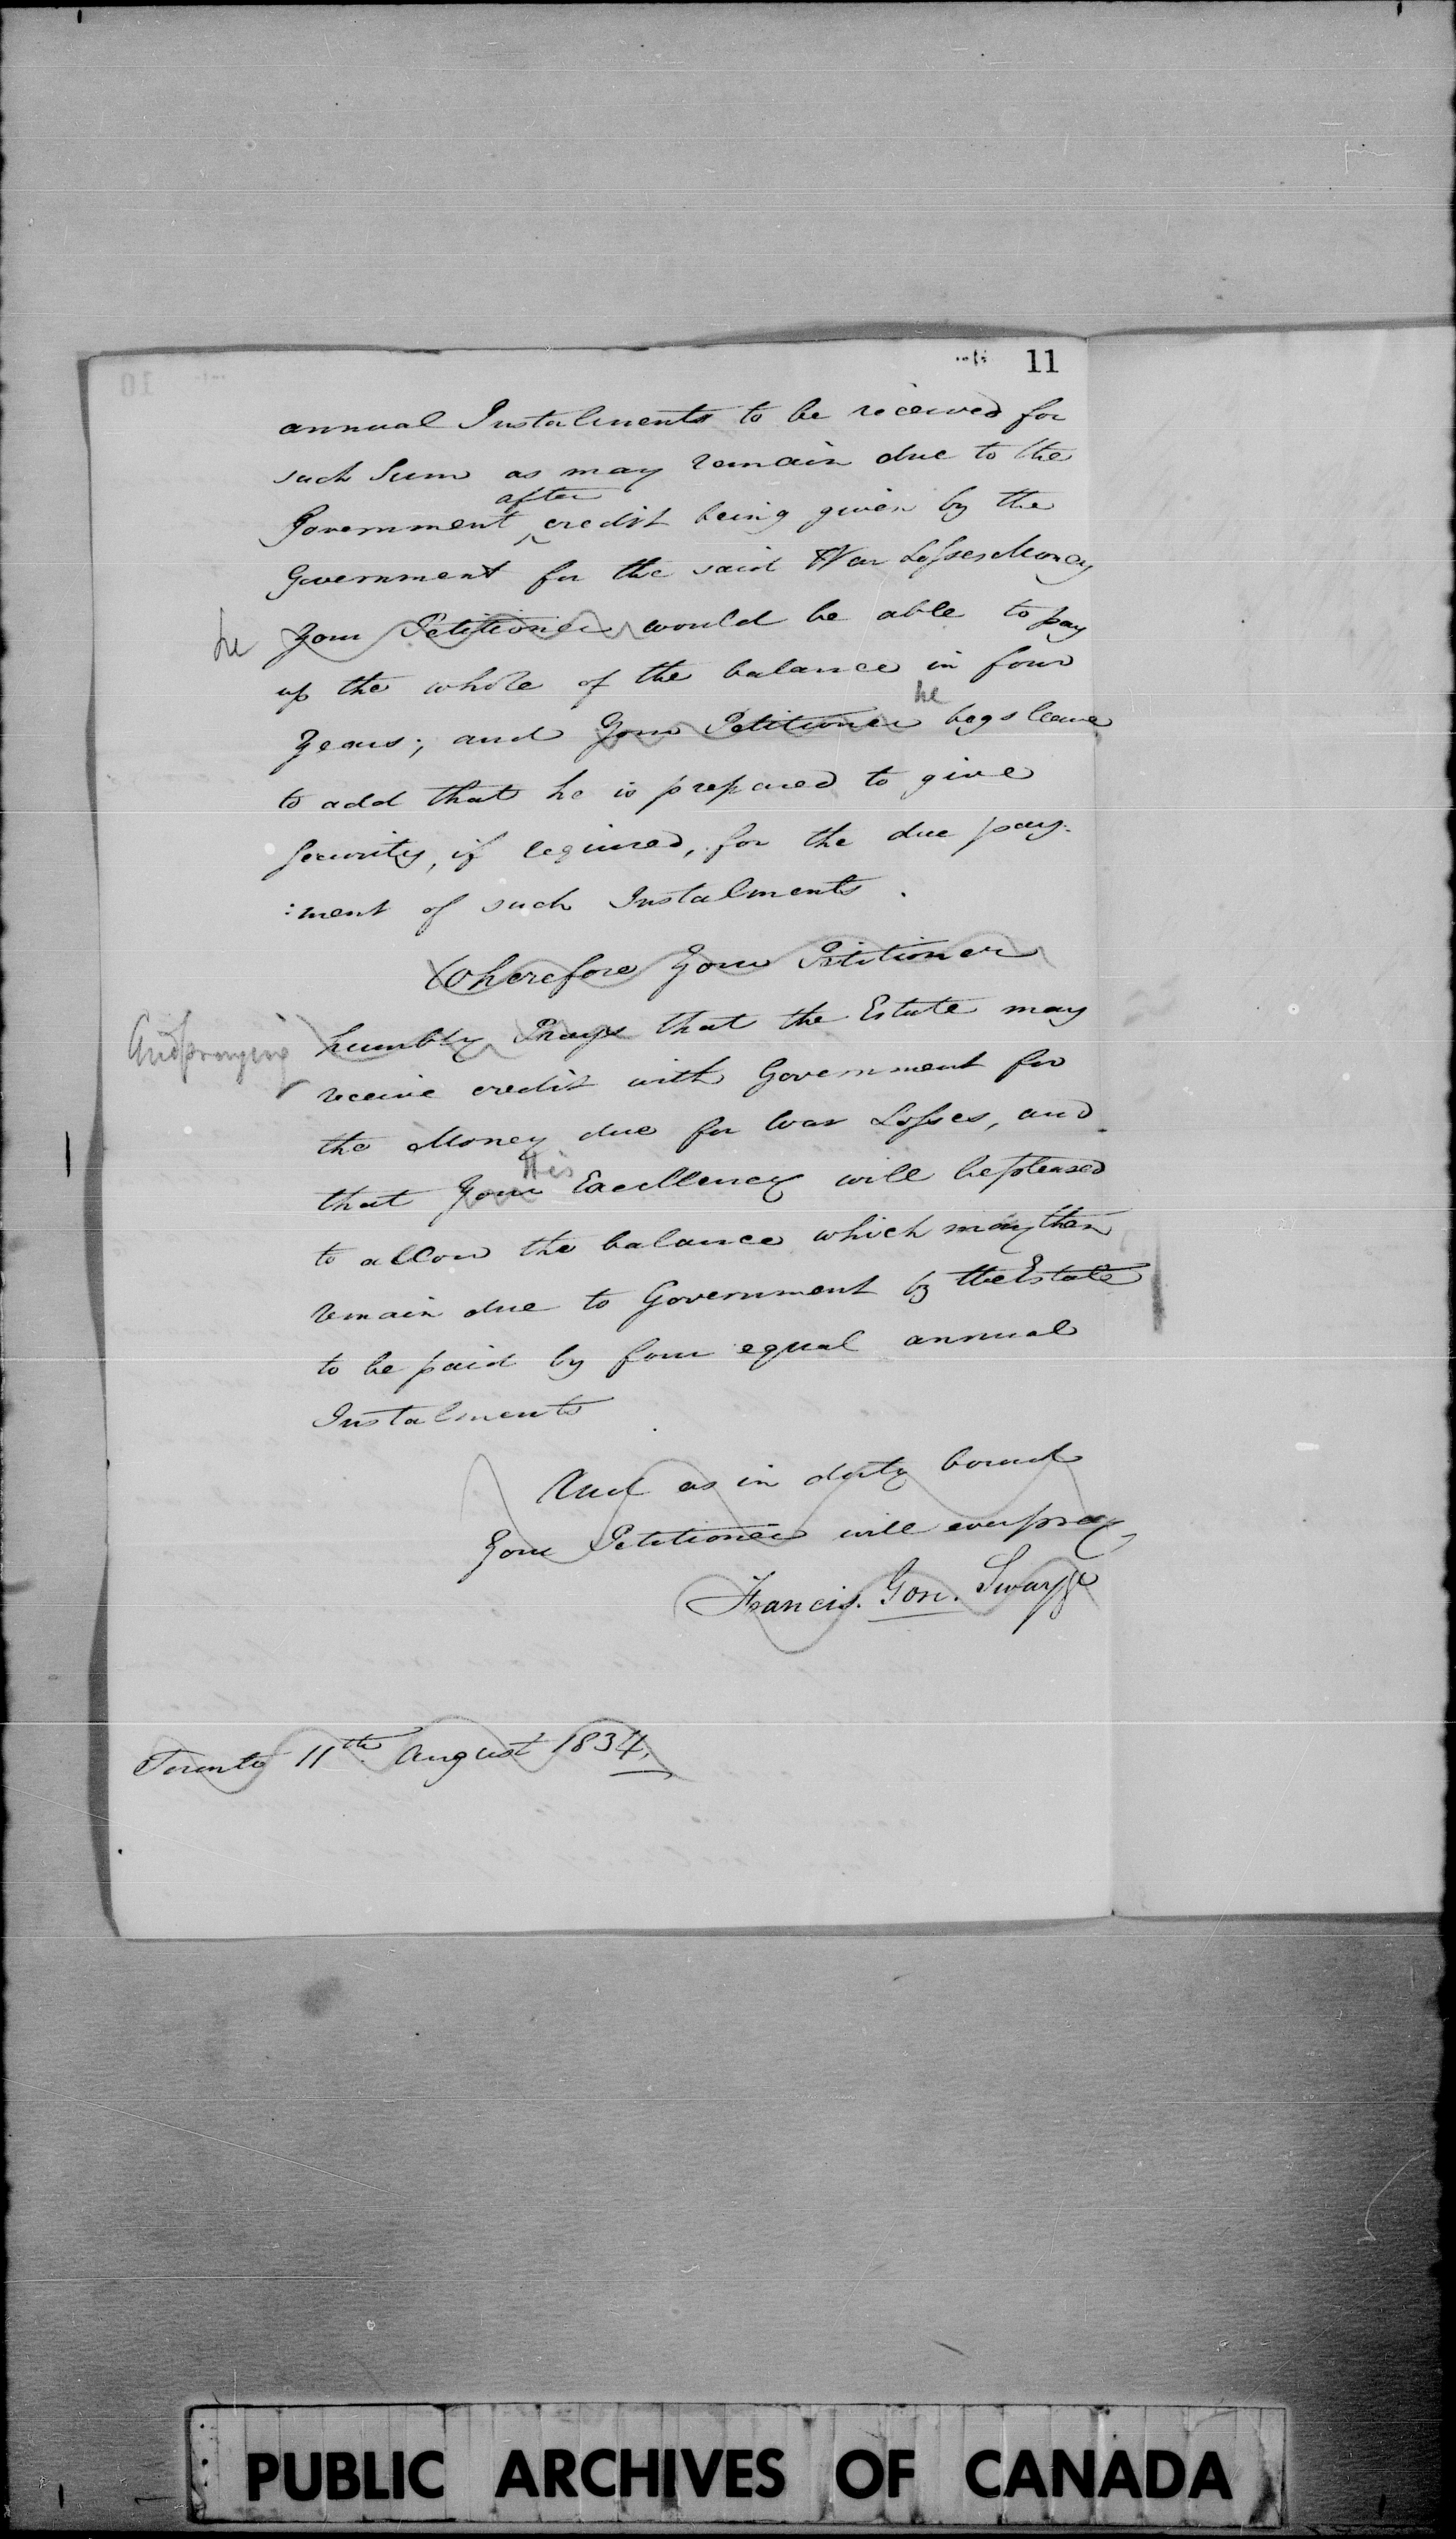 11
annual Instalments to be received for
such Sum as may remain due to the
after
Government credit being given by the
Government for the said War Losses Money
he Your Petitioner would be able to pay
up the whole of the balance in four
he
Years; and Your Petitioner begs leave
to add that he is prepared to give
Security, if required, for the due pay:
:ment of such Instalments.
Wherefore Your Petitioner
And praying humbly Prays that the Estate may
receive credit with Government for
the Money due for War Losses, and
His
that Your Excellency will be pleased
to allow the balance which may then
remain due to Government by the Estate
to be paid by four equal annual
Instalments
And as in duty bound
Your Petitioner will ever pray
Francis. Gore.
Toronto 11th August 1834.
PUBLIC ARCHIVES OF CANADA